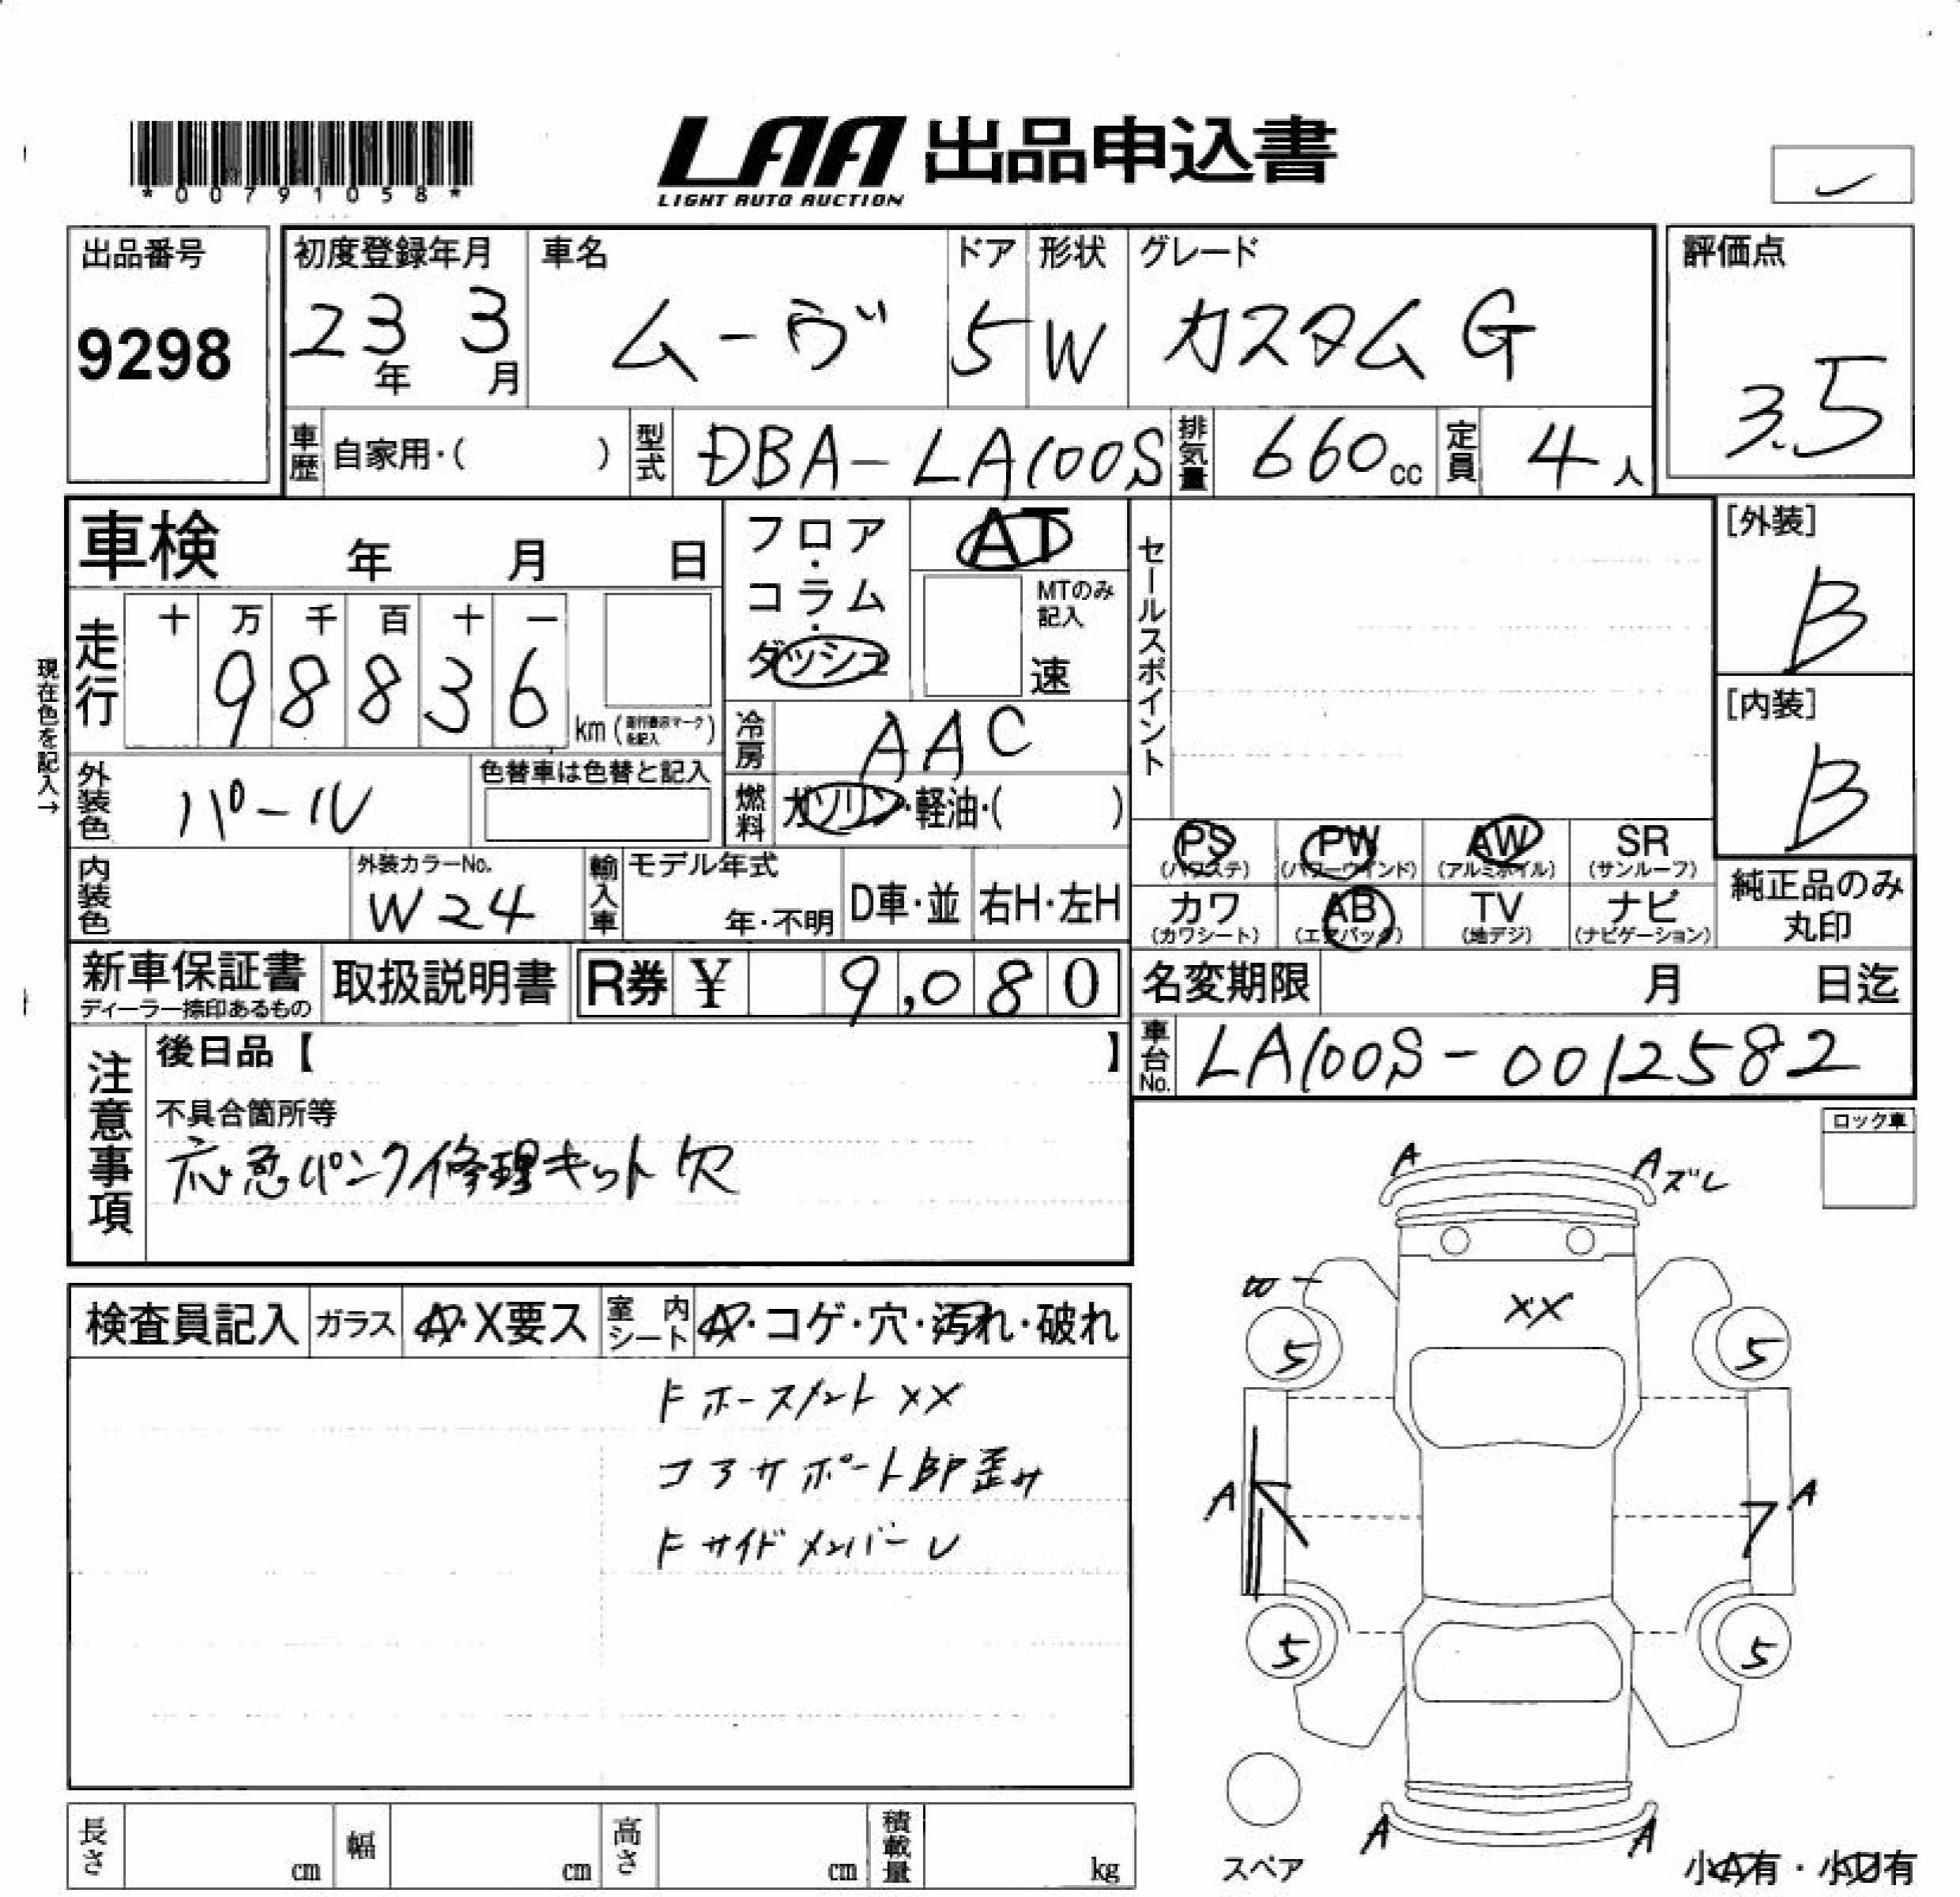 *00791058*
LAA 出品申込書
LIGHT AUTO AUCTION
出品番号
9298
初度登録年月
23年 3月
車名
ムーヴ
ドア
5
形状
W
グレード
カスタム G
評価点
3.5
車歴 自家用・( )
型式 DBA-LA100S
排気量 660cc
定員 4人
車検 年 月 日
フロア・コラム・ダッシュ
AT
MTのみ記入
速
セールスポイント
[外装]
B
[内装]
B
現在色を記入→
走行
十 万 千 百 十 一
9 8 8 3 6
km(走行表示マークを記入)
冷房 AAC
外装色 パール
色替車は色替と記入
燃料 ガソリン・軽油・( )
PS (パワステ)
PW (パワーウインド)
AW (アルミホイル)
SR (サンルーフ)
カワ (カワシート)
AB (エアバッグ)
TV (地デジ)
ナビ (ナビゲーション)
純正品のみ丸印
内装色
外装カラーNo.
W24
輸入車
モデル年式
年・不明
D車・並
右H・左H
新車保証書
ディーラー捺印あるもの
取扱説明書
R券 ¥ 9,080
名変期限 月 日迄
車台No. LA100S-0012582
注意事項
後日品【 】
不具合箇所等
応急パンク修理キット欠
ロック車
検査員記入
ガラス
A・X要ス
室内シート
A・コゲ・穴・汚れ・破れ
Fホースメント XX
コアサポート部歪み
Fサイドメンバー U
A
A ズレ
W
XX
5
5
A
A
5
5
A
A
スペア
小A有・小U有
長さ cm
幅 cm
高さ cm
積載量 kg